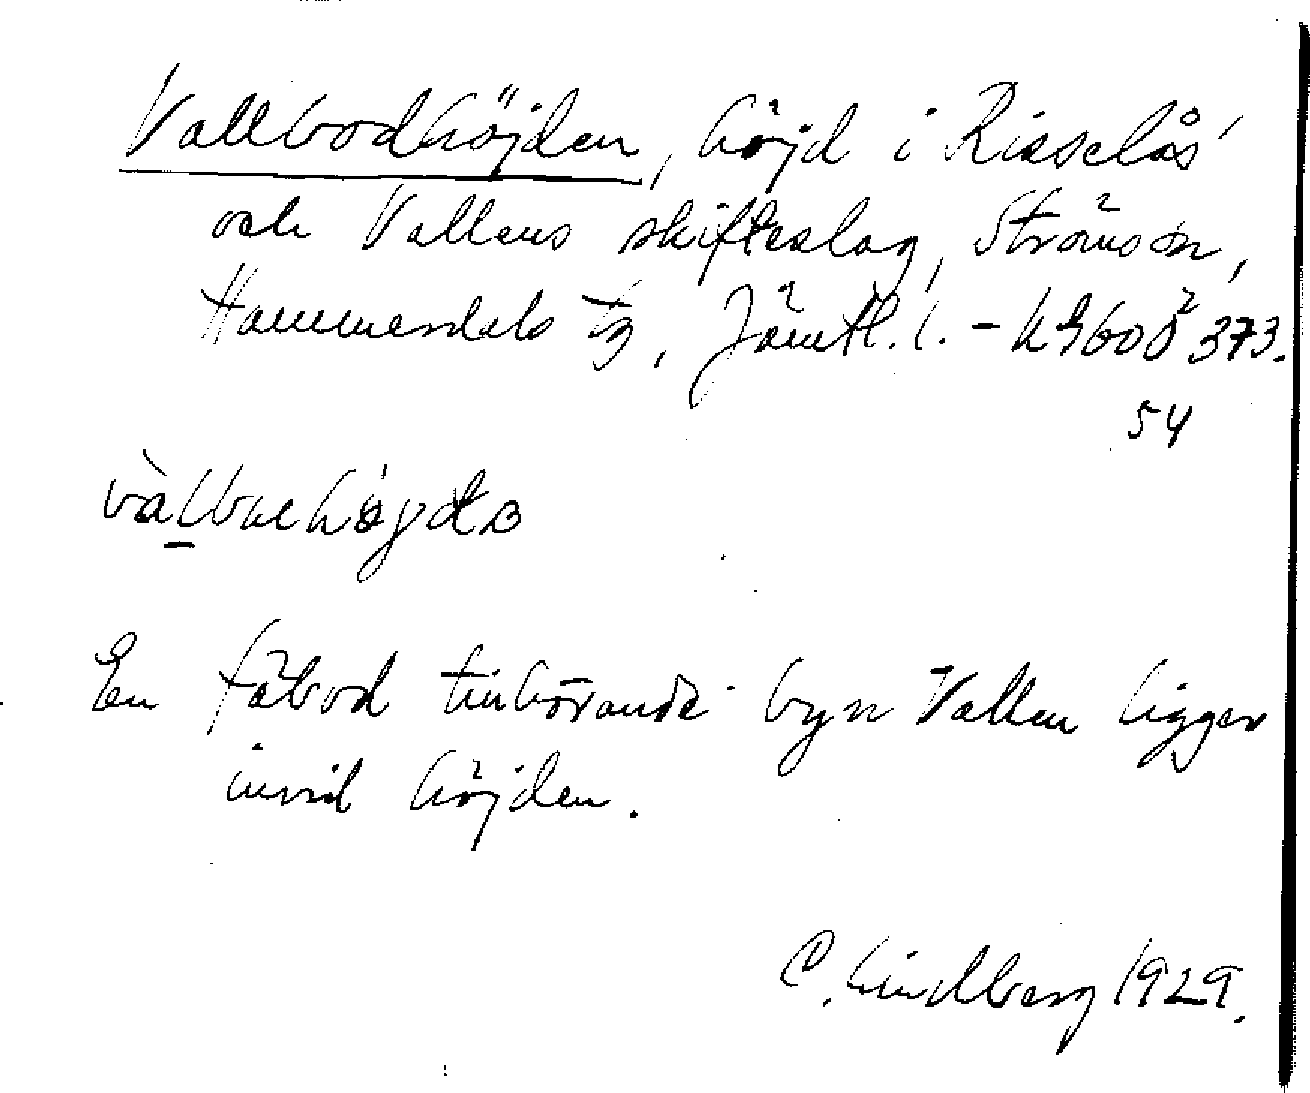 Vallbodhöjden, höjd i Risselås
och Vallens skifteslag, Ströms sn,
Hammerdals tg, Jämtl. l. - kgbOÖ 373.
54
En fäbod tillhörande byn Vallen ligger
invid höjden.
C. Lindberg 1929.